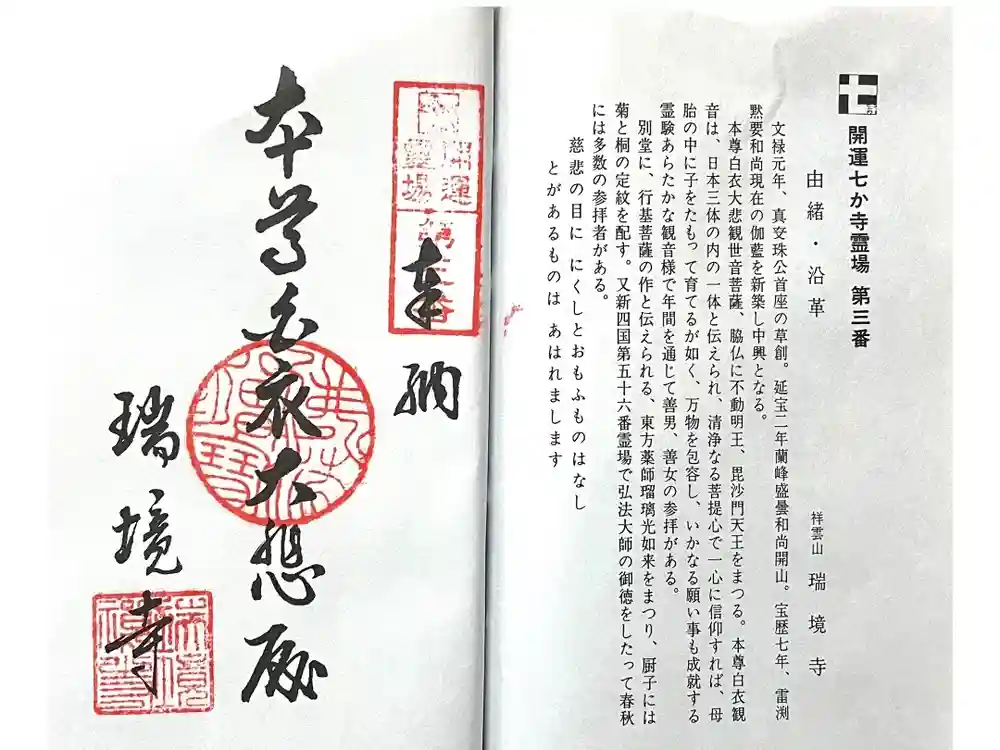 開運七か寺霊場 第三番
由緒・沿革
祥雲山 瑞境寺
文禄元年、真叟珠公首座の草創。延宝二年蘭峰盛曇和尚開山。宝歴七年、雷渕
黙要和尚現在の伽藍を新築し中興となる。
本尊白衣大悲観世音菩薩、脇仏に不動明王、毘沙門天王をまつる。本尊白衣観
音は、日本三体の内の一体と伝えられ、清浄なる菩提心で一心に信仰すれば、母
胎の中に子をたもって育てるが如く、万物を包容し、いかなる願い事も成就する
霊験あらたかな観音様で年間を通じて善男、善女の参拝がある。
別堂に、行基菩薩の作と伝えられる、東方薬師瑠璃光如来をまつり、厨子には
菊と桐の定紋を配す。又新四国第五十六番霊場で弘法大師の御徳をしたって春秋
には多数の参拝者がある。
慈悲の目に にくしとおもふものはなし
とがあるものは あはれまします
奉納
開運
霊場
本尊白衣大悲殿
瑞境寺